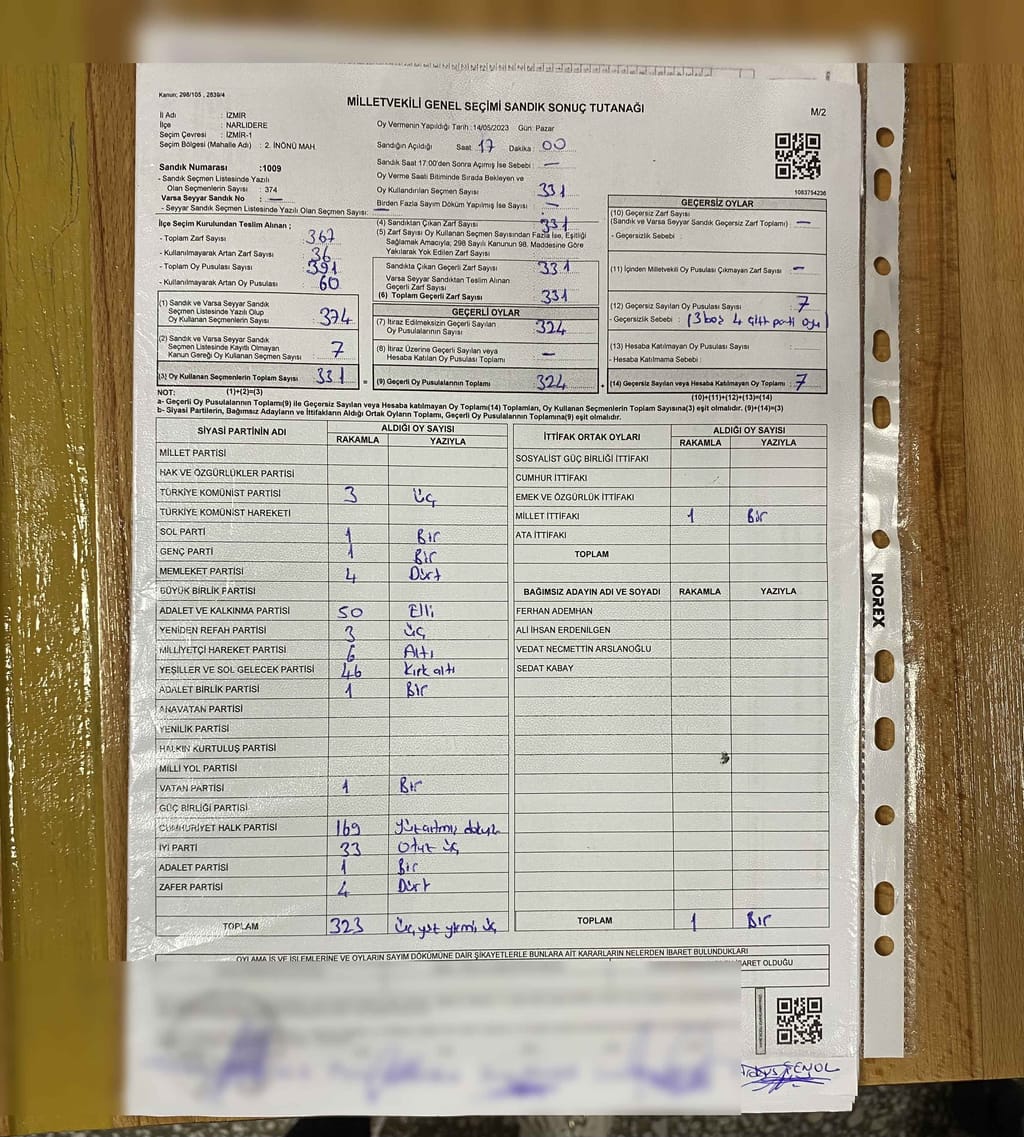 Kanun; 298/105 , 2839/4
MİLLETVEKİLİ GENEL SEÇİMİ SANDIK SONUÇ TUTANAĞI
M/2
İl Adı : İZMİR
İlçe : NARLIDERE
Seçim Çevresi : İZMİR-1
Seçim Bölgesi (Mahalle Adı) : 2. İNÖNÜ MAH.
Sandık Numarası :1009
- Sandık Seçmen Listesinde Yazılı
Olan Seçmenlerin Sayısı : 374
Varsa Seyyar Sandık No : —
- Seyyar Sandık Seçmen Listesinde Yazılı Olan Seçmen Sayısı: —
Oy Vermenin Yapıldığı Tarih :14/05/2023 Gün: Pazar
Sandığın Açıldığı Saat: 17 Dakika : 00
Sandık Saat 17.00'den Sonra Açımış İse Sebebi : —
Oy Verme Saati Bitiminde Sırada Bekleyen ve
Oy Kullandırılan Seçmen Sayısı : 331
Birden Fazla Sayım Döküm Yapılmış İse Sayısı : —
1083754236
İlçe Seçim Kurulundan Teslim Alınan ;
- Toplam Zarf Sayısı : 367
- Kullanılmayarak Artan Zarf Sayısı : 36
- Toplam Oy Pusulası Sayısı : 391
- Kullanılmayarak Artan Oy Pusulası : 60
(1) Sandık ve Varsa Seyyar Sandık
Seçmen Listesinde Yazılı Olup
Oy Kullanan Seçmenlerin Sayısı : 374
(2) Sandık ve Varsa Seyyar Sandık
Seçmen Listesinde Kayıtlı Olmayan
Kanun Gereği Oy Kullanan Seçmen Sayısı : 7
(3) Oy Kullanan Seçmenlerin Toplam Sayısı : 331
(1)+(2)=(3)
(4) Sandıktan Çıkan Zarf Sayısı : 331
(5) Zarf Sayısı Oy Kullanan Seçmen Sayısından Fazla İse, Eşitliği
Sağlamak Amacıyla; 298 Sayılı Kanunun 98. Maddesine Göre
Yakılarak Yok Edilen Zarf Sayısı :
Sandıkta Çıkan Geçerli Zarf Sayısı : 331
Varsa Seyyar Sandıktan Teslim Alınan
Geçerli Zarf Sayısı :
(6) Toplam Geçerli Zarf Sayısı : 331
GEÇERLİ OYLAR
(7) İtiraz Edilmeksizin Geçerli Sayılan
Oy Pusulalarının Sayısı : 324
(8) İtiraz Üzerine Geçerli Sayılan veya
Hesaba Katılan Oy Pusulası Toplamı : —
(9) Geçerli Oy Pusulalarının Toplamı : 324
GEÇERSİZ OYLAR
(10) Geçersiz Zarf Sayısı
(Sandık ve Varsa Seyyar Sandık Geçersiz Zarf Toplamı) : —
- Geçersizlik Sebebi :
(11) İçinden Milletvekili Oy Pusulası Çıkmayan Zarf Sayısı : —
(12) Geçersiz Sayılan Oy Pusulası Sayısı : 7
- Geçersizlik Sebebi : (3 boş 4 çift parti oyu)
(13) Hesaba Katılmayan Oy Pusulası Sayısı :
- Hesaba Katılmama Sebebi :
(14) Geçersiz Sayılan veya Hesaba Katılmayan Oy Toplamı : 7
(10)+(11)+(12)+(13)=(14)
NOT:
a- Geçerli Oy Pusulalarının Toplamı(9) ile Geçersiz Sayılan veya Hesaba katılmayan Oy Toplamı(14) Toplamları, Oy Kullanan Seçmenlerin Toplam Sayısına(3) eşit olmalıdır. (9)+(14)=(3)
b- Siyasi Partilerin, Bağımsız Adayların ve İttifakların Aldığı Ortak Oyların Toplamı, Geçerli Oy Pusulalarının Toplamına(9) eşit olmalıdır.
SİYASİ PARTİNİN ADI ALDIĞI OY SAYISI
RAKAMLA YAZIYLA
MİLLET PARTİSİ
HAK VE ÖZGÜRLÜKLER PARTİSİ
TÜRKİYE KOMÜNİST PARTİSİ 3 üç
TÜRKİYE KOMÜNİST HAREKETİ
SOL PARTİ 1 Bir
GENÇ PARTİ 1 Bir
MEMLEKET PARTİSİ 4 Dört
BÜYÜK BİRLİK PARTİSİ
ADALET VE KALKINMA PARTİSİ 50 Elli
YENİDEN REFAH PARTİSİ 3 üç
MİLLİYETÇİ HAREKET PARTİSİ 6 Altı
YEŞİLLER VE SOL GELECEK PARTİSİ 46 Kırk altı
ADALET BİRLİK PARTİSİ 1 Bir
ANAVATAN PARTİSİ
YENİLİK PARTİSİ
HALKIN KURTULUŞ PARTİSİ
MİLLİ YOL PARTİSİ
VATAN PARTİSİ 1 Bir
GÜÇ BİRLİĞİ PARTİSİ
CUMHURİYET HALK PARTİSİ 169 yüzatmış dokuz
İYİ PARTİ 33 Otuz üç
ADALET PARTİSİ 1 Bir
ZAFER PARTİSİ 4 Dört
TOPLAM 323 üç yüz yirmi üç
İTTİFAK ORTAK OYLARI ALDIĞI OY SAYISI
RAKAMLA YAZIYLA
SOSYALİST GÜÇ BİRLİĞİ İTTİFAKI
CUMHUR İTTİFAKI
EMEK VE ÖZGÜRLÜK İTTİFAKI
MİLLET İTTİFAKI 1 Bir
ATA İTTİFAKI
TOPLAM
BAĞIMSIZ ADAYIN ADI VE SOYADI RAKAMLA YAZIYLA
FERHAN ADEMHAN
ALİ İHSAN ERDENİLGEN
VEDAT NECMETTİN ARSLANOĞLU
SEDAT KABAY
TOPLAM 1 Bir
OYLAMA İŞ VE İŞLEMLERİNE VE OYLARIN SAYIM DÖKÜMÜNE DAİR ŞİKAYETLERLE BUNLARA AİT KARARLARIN NELERDEN İBARET BULUNDUKLARI
BARET OLDUĞU
ŞENOL
NOREX